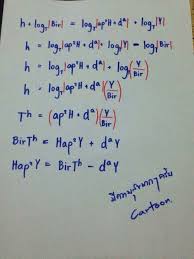 h + log_T|Bir| = log_T|ap²H + dᵃ| + log_T|Y|
h = log_T|ap²H + dᵃ| + log_T|Y| - log_T|Bir|
h = log_T|ap²H + dᵃ| + log_T|Y/Bir|
h = log_T|(ap²H + dᵃ)(Y/Bir)|
Tʰ = (ap²H + dᵃ)(Y/Bir)
BirTʰ = Hap²Y + dᵃY
Hap²Y = BirTʰ - dᵃY
Cartoon.